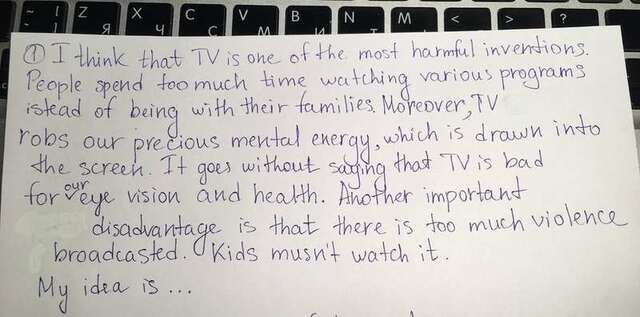 ~ ! Z X C V B N M < > ?
\ Я Ч С М И Т Ь /
① I think that TV is one of the most harmful inventions.
People spend too much time watching various programs
istead of being with their families. Moreover, TV
robs our precious mental energy, which is drawn into
the screen. It goes without saying that TV is bad
for our eye vision and health. Another important
disadvantage is that there is too much violence
broadcasted. Kids musn't watch it.
My idea is ...